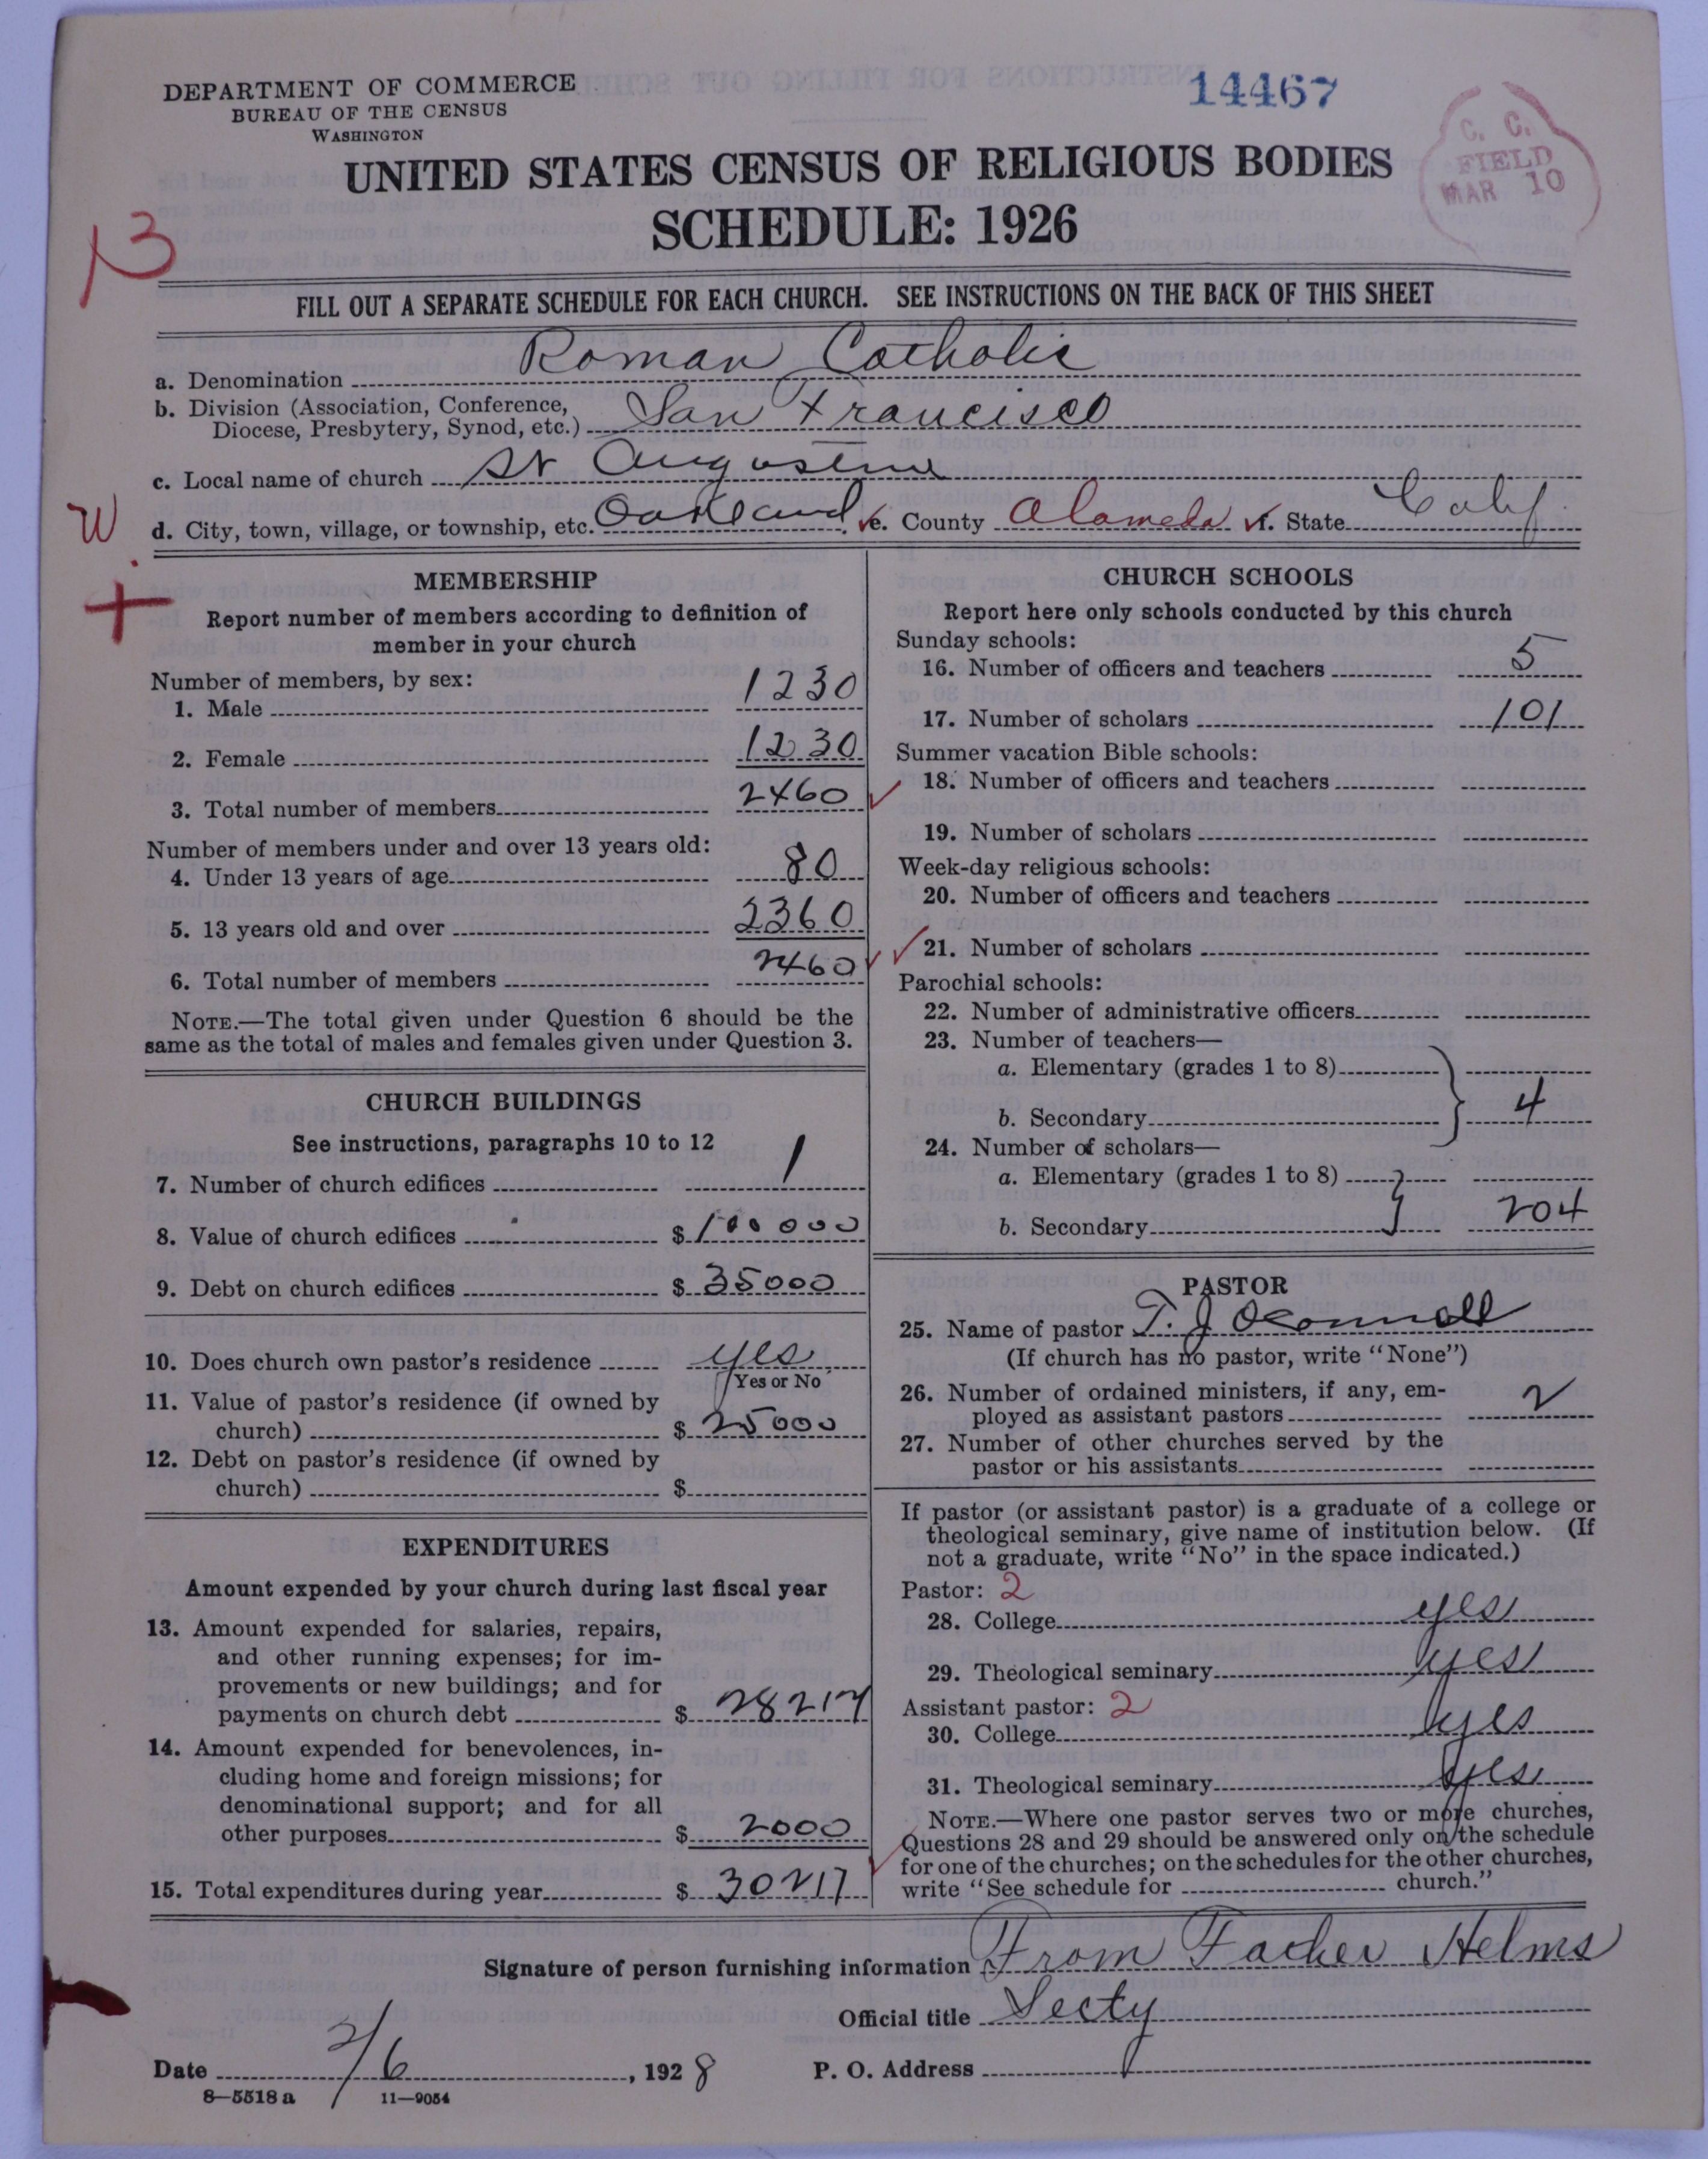 DEPARTMENT OF COMMERCE
BUREAU OF THE CENSUS
WASHINGTON
14467
C. C.
FIELD
MAR 10
UNITED STATES CENSUS OF RELIGIOUS BODIES
SCHEDULE: 1926
13
FILL OUT A SEPARATE SCHEDULE FOR EACH CHURCH. SEE INSTRUCTIONS ON THE BACK OF THIS SHEET
a. Denomination Roman Catholic
b. Division (Association, Conference,
Diocese, Presbytery, Synod, etc.) San Francisco
c. Local name of church St Augustine
W
d. City, town, village, or township, etc. Oakland e. County Alameda f. State Calif
+
MEMBERSHIP
Report number of members according to definition of
member in your church
Number of members, by sex:
1. Male 1230
2. Female 1230
3. Total number of members 2460
Number of members under and over 13 years old:
4. Under 13 years of age 80
5. 13 years old and over 2360
6. Total number of members 2460
NOTE.—The total given under Question 6 should be the
same as the total of males and females given under Question 3.
CHURCH BUILDINGS
See instructions, paragraphs 10 to 12
7. Number of church edifices 1
8. Value of church edifices $ 100000
9. Debt on church edifices $ 35000
10. Does church own pastor's residence yes
Yes or No
11. Value of pastor's residence (if owned by
church) $ 25000
12. Debt on pastor's residence (if owned by
church) $
EXPENDITURES
Amount expended by your church during last fiscal year
13. Amount expended for salaries, repairs,
and other running expenses; for im-
provements or new buildings; and for
payments on church debt $ 28217
14. Amount expended for benevolences, in-
cluding home and foreign missions; for
denominational support; and for all
other purposes $ 2000
15. Total expenditures during year $ 30217
CHURCH SCHOOLS
Report here only schools conducted by this church
Sunday schools:
16. Number of officers and teachers 5
17. Number of scholars 101
Summer vacation Bible schools:
18. Number of officers and teachers
19. Number of scholars
Week-day religious schools:
20. Number of officers and teachers
21. Number of scholars
Parochial schools:
22. Number of administrative officers
23. Number of teachers—
a. Elementary (grades 1 to 8)
b. Secondary 4
24. Number of scholars—
a. Elementary (grades 1 to 8)
b. Secondary 204
PASTOR
25. Name of pastor T. J OConnell
(If church has no pastor, write "None")
26. Number of ordained ministers, if any, em-
ployed as assistant pastors 2
27. Number of other churches served by the
pastor or his assistants
If pastor (or assistant pastor) is a graduate of a college or
theological seminary, give name of institution below. (If
not a graduate, write "No" in the space indicated.)
Pastor: 2
28. College yes
29. Theological seminary yes
Assistant pastor: 2
30. College yes
31. Theological seminary yes
NOTE.—Where one pastor serves two or more churches,
Questions 28 and 29 should be answered only on the schedule
for one of the churches; on the schedules for the other churches,
write "See schedule for church."
Signature of person furnishing information From Father Helms
Official title Secty
Date 2/6, 1928 P. O. Address
8—5518 a 11—9054